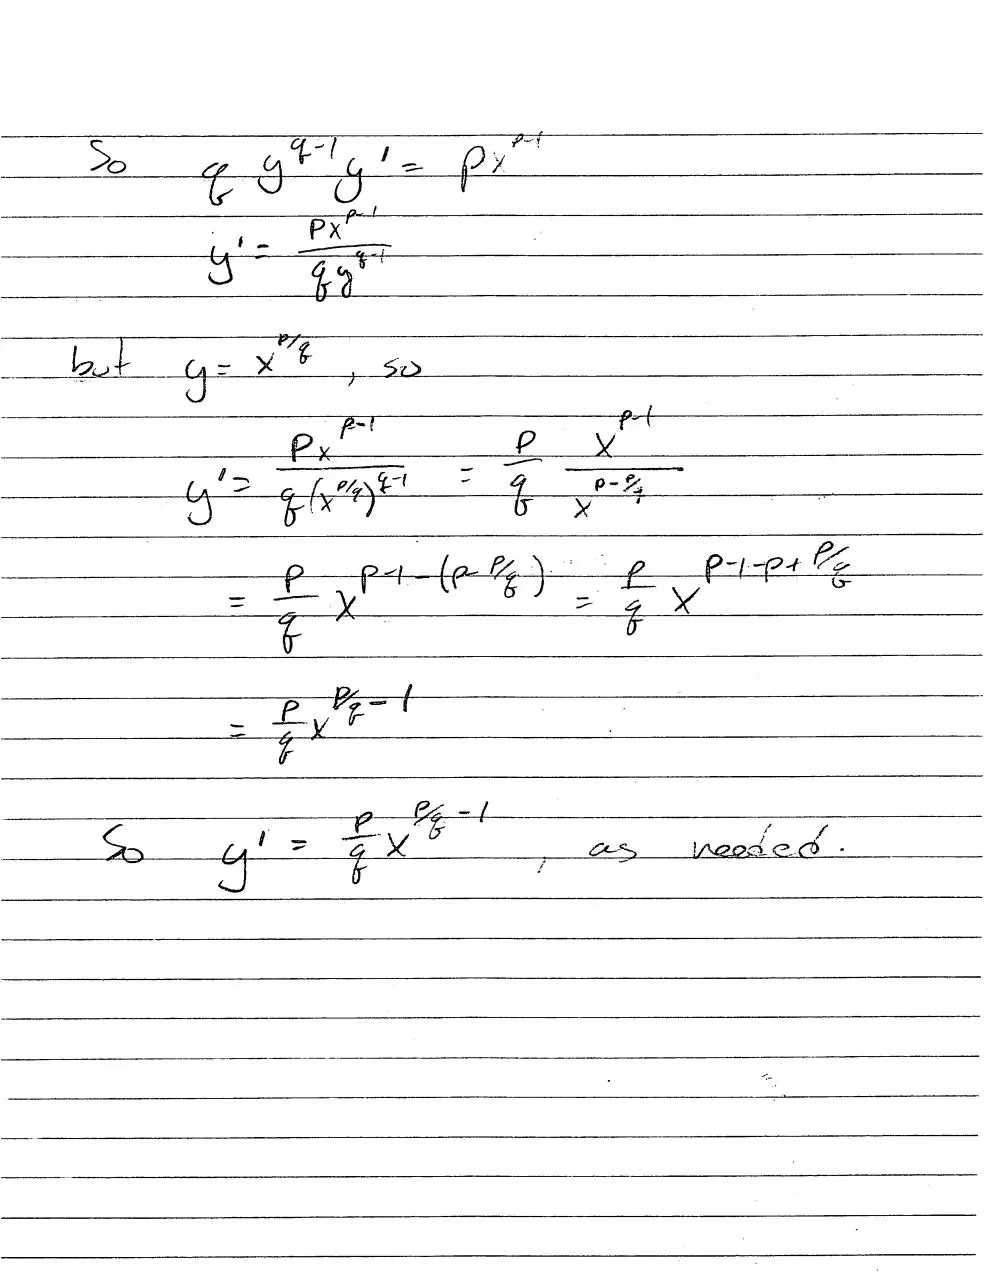 So q y^{q-1} y' = px^{p-1}
y' = \frac{px^{p-1}}{qy^{q-1}}
but y = x^{p/q}, so
y' = \frac{px^{p-1}}{q(x^{p/q})^{q-1}} = \frac{p}{q} \frac{x^{p-1}}{x^{p-p/q}}
= \frac{p}{q} x^{p-1-(p-p/q)} = \frac{p}{q} x^{p-1-p+p/q}
= \frac{p}{q} x^{p/q-1}
So y' = \frac{p}{q} x^{p/q-1}, as needed.